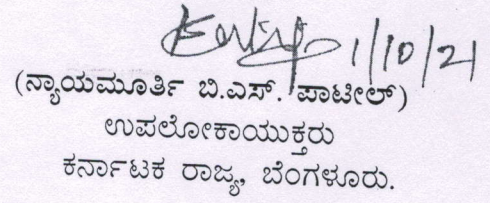 1/10/21
(ನ್ಯಾಯಮೂರ್ತಿ ಬಿ.ಎಸ್. ಪಾಟೀಲ್)
ಉಪಲೋಕಾಯುಕ್ತರು
ಕರ್ನಾಟಕ ರಾಜ್ಯ, ಬೆಂಗಳೂರು.